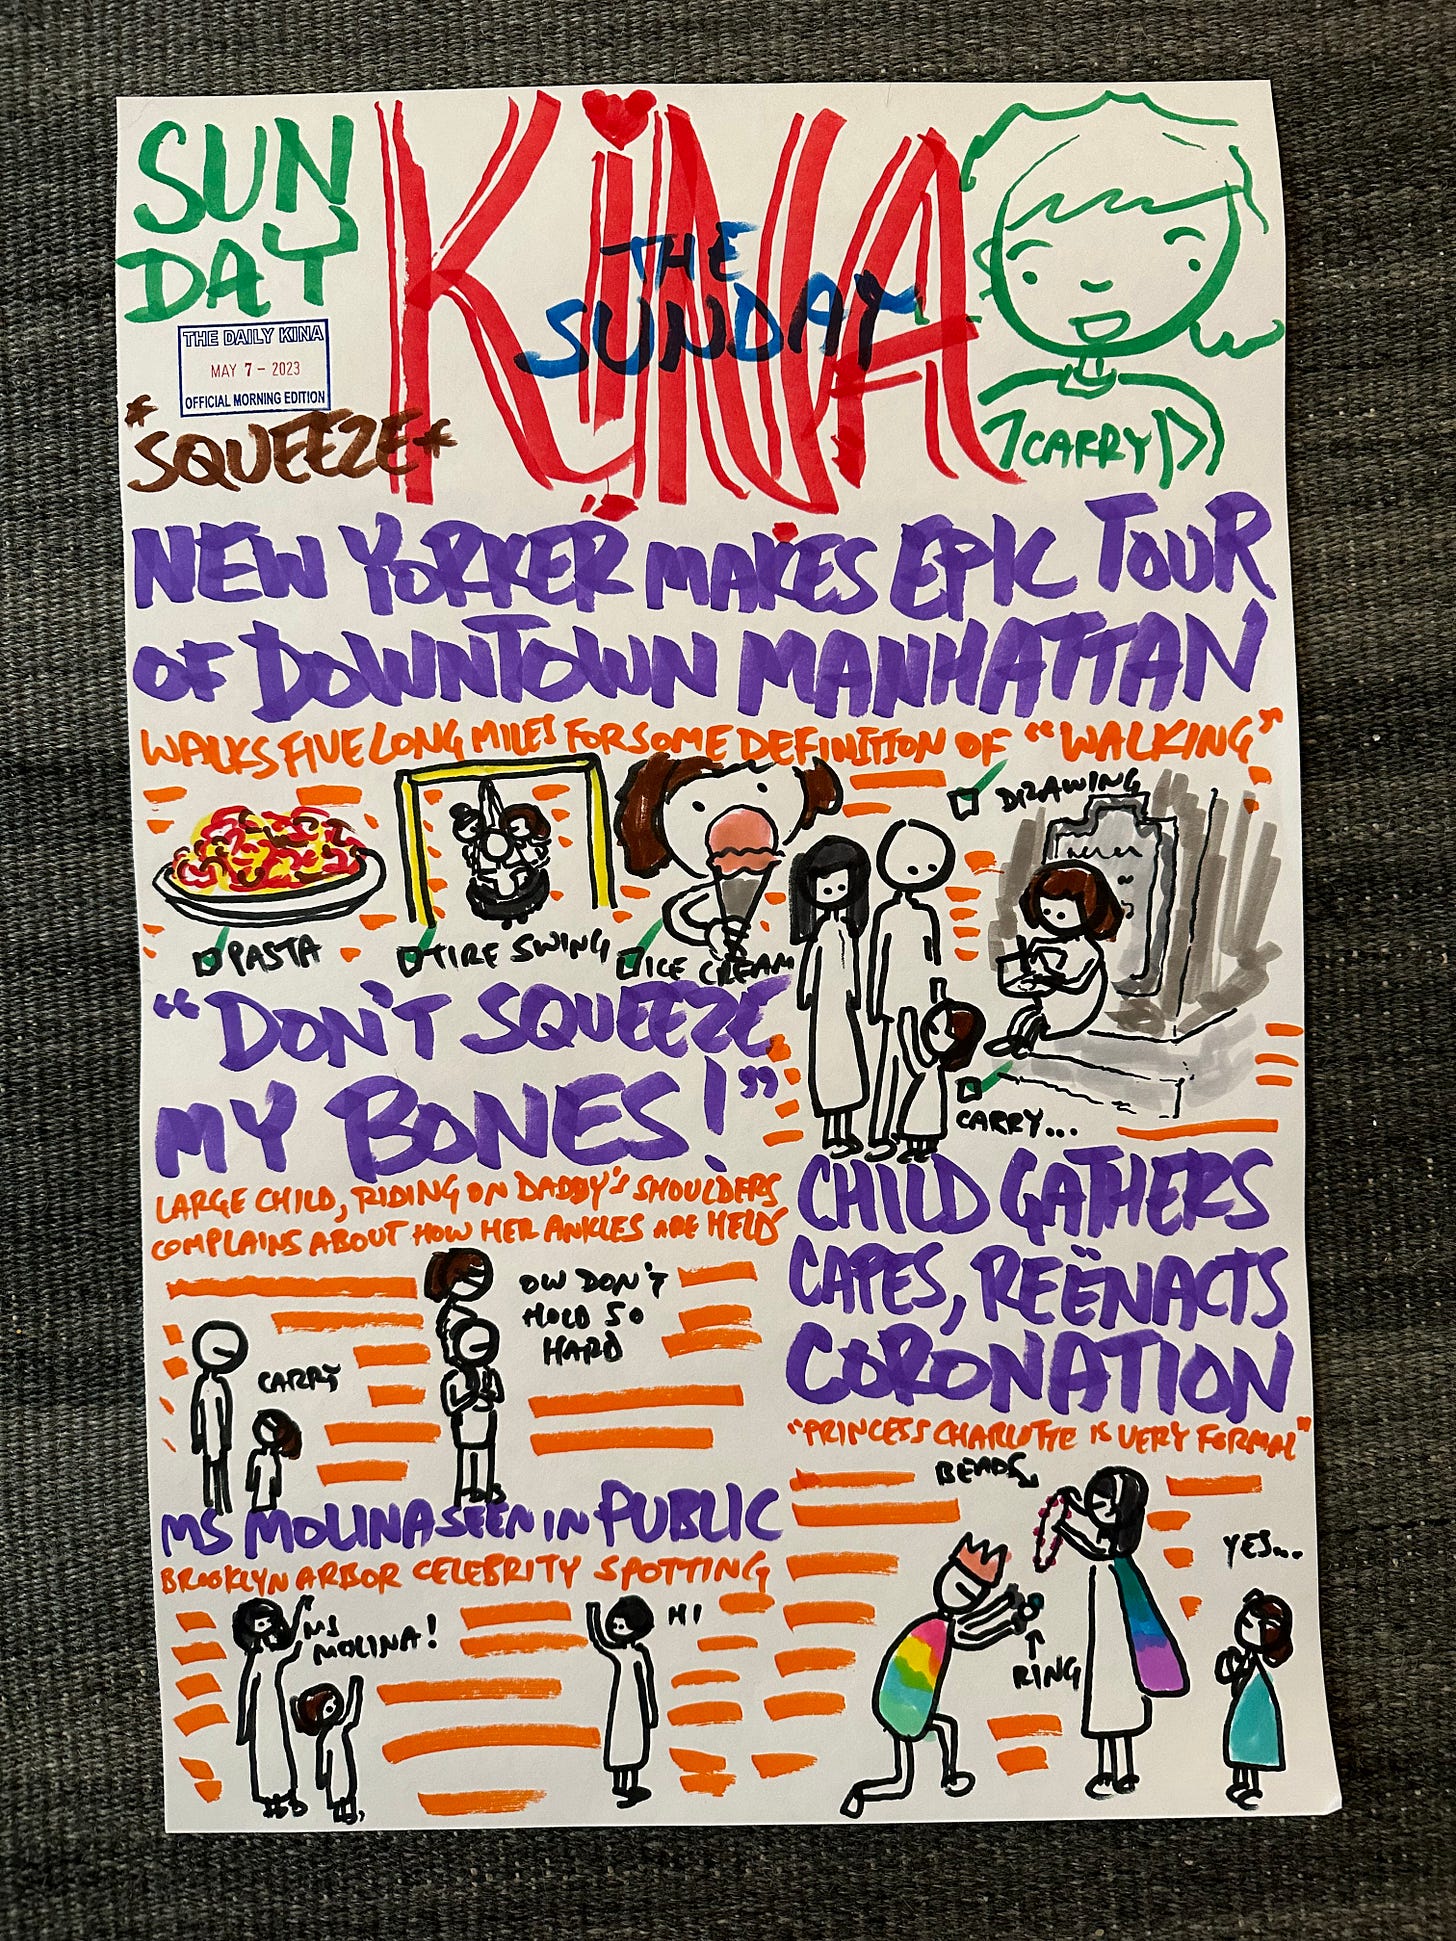 SUN
DAY
KINA
THE
SUNDAY
THE DAILY KINA
MAY 7 - 2023
OFFICIAL MORNING EDITION
*SQUEEZE*
CARRY
NEW YORKER MAKES EPIC TOUR
OF DOWNTOWN MANHATTAN
WALKS FIVE LONG MILES FOR SOME DEFINITION OF "WALKING"
PASTA
TIRE SWING
ICE CREAM
DRAWING
CARRY...
"DON'T SQUEEZE
MY BONES!"
LARGE CHILD, RIDING ON DADDY'S SHOULDERS
COMPLAINS ABOUT HOW HER ANKLES ARE HELD
CARRY
OW DON'T
HOLD SO
HARD
MS MOLINA SEEN IN PUBLIC
BROOKLYN ARBOR CELEBRITY SPOTTING
MS
MOLINA!
HI
CHILD GATHERS
CAPES, REËNACTS
CORONATION
"PRINCESS CHARLOTTE IS VERY FORMAL"
BEADS
RING
YES...